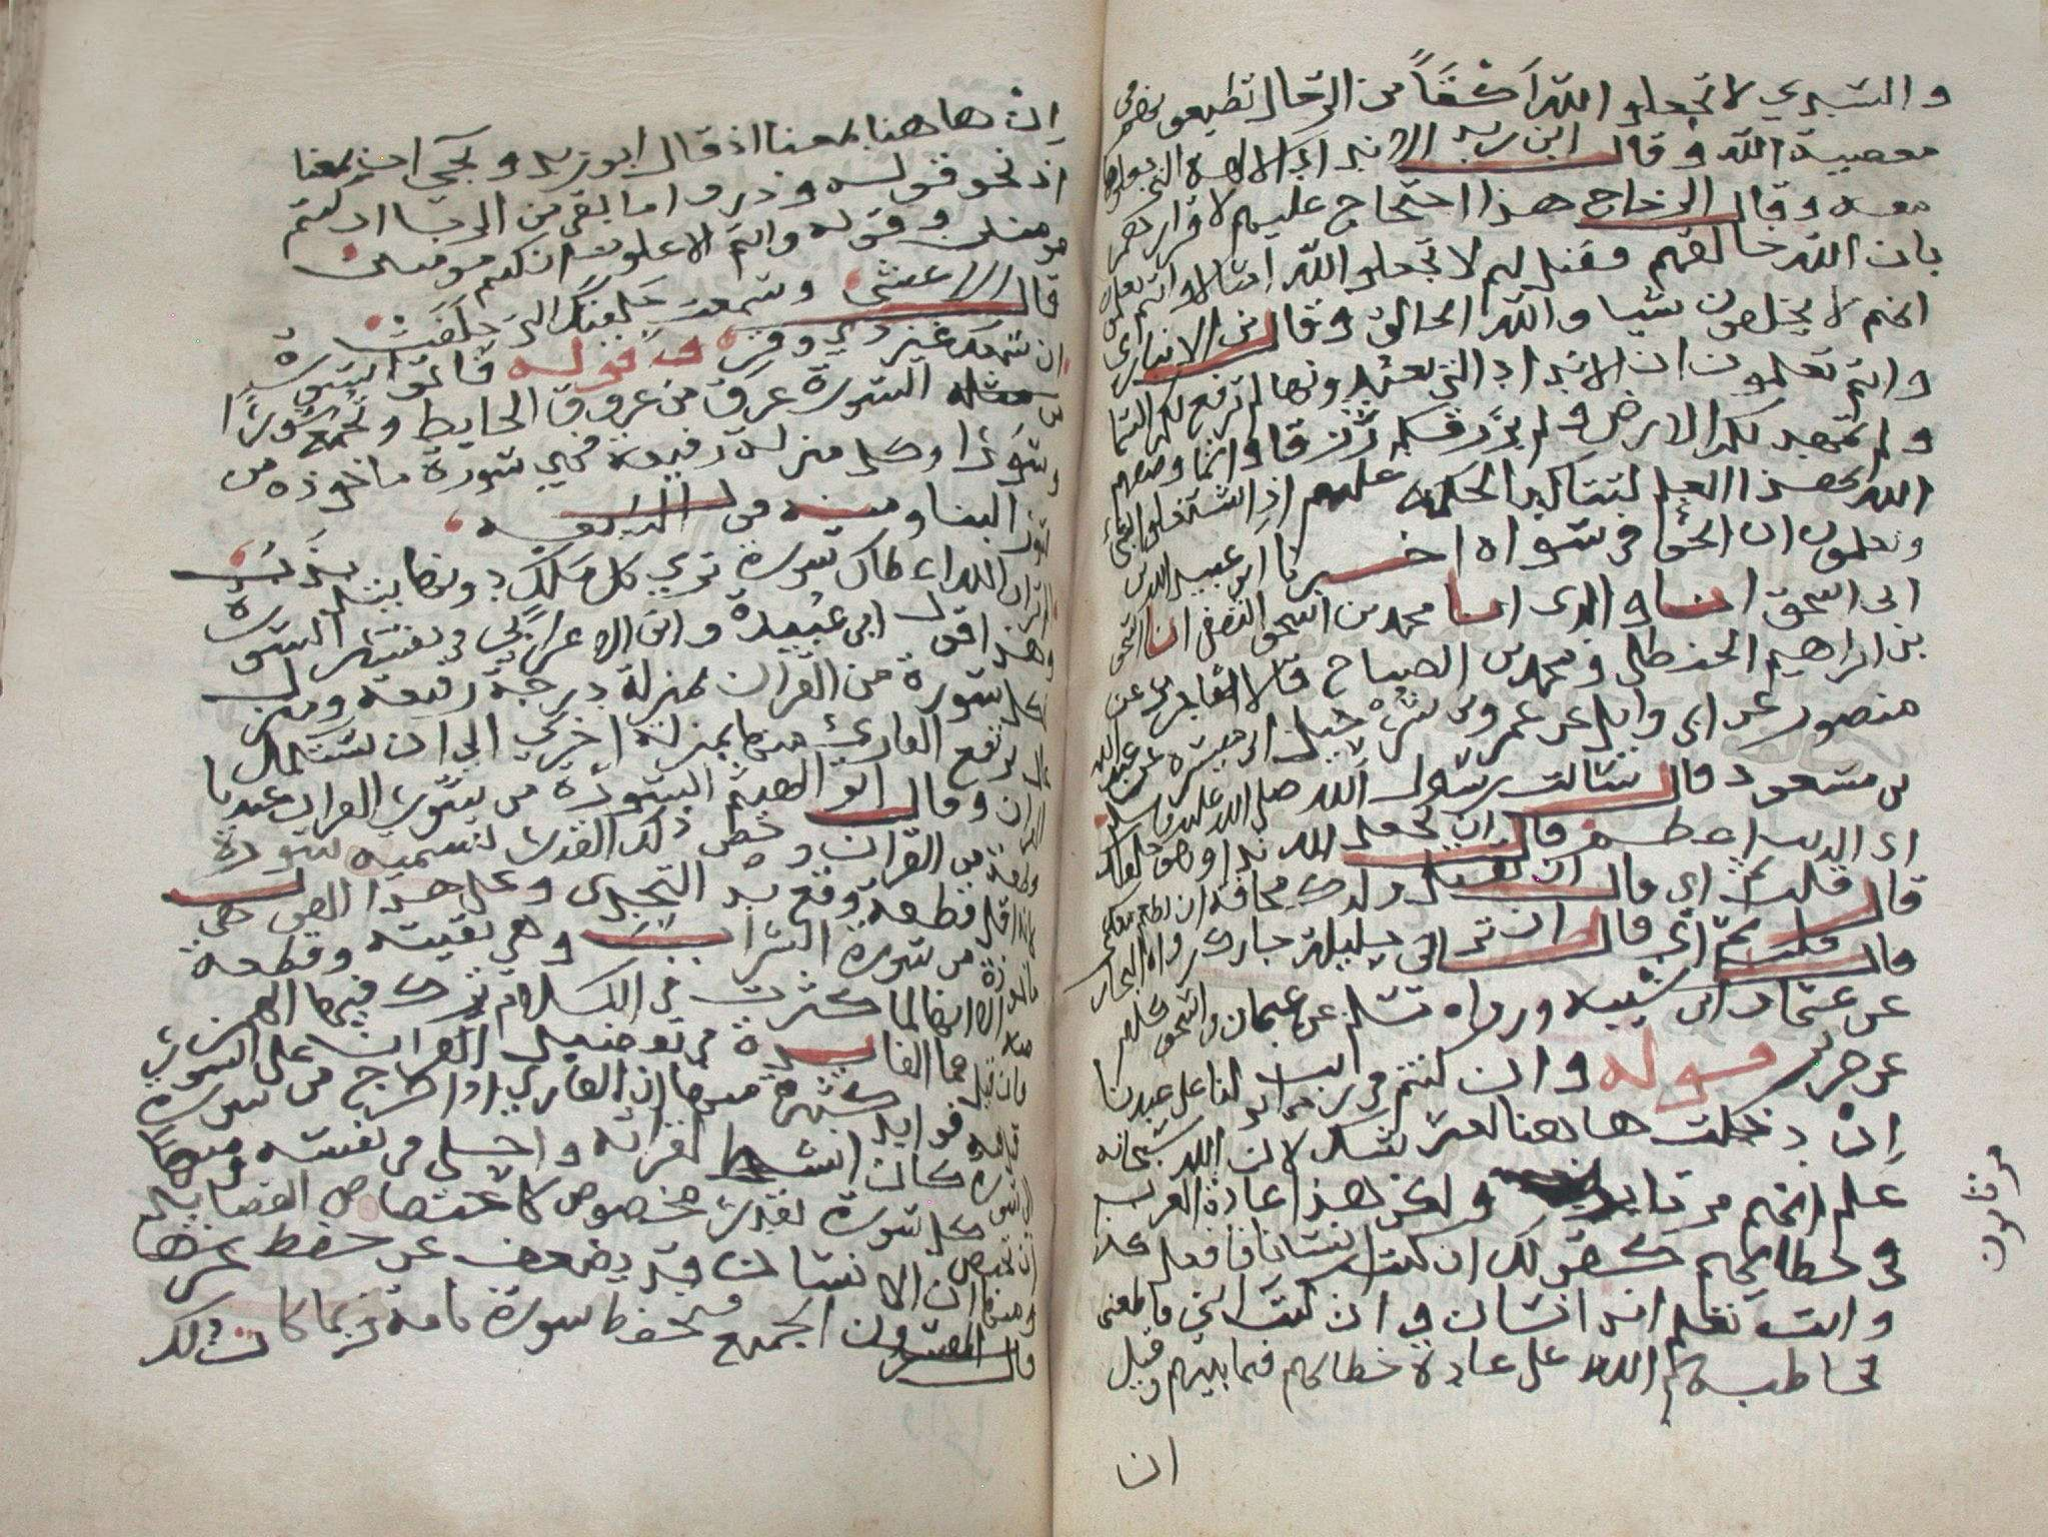 والسدي لا تجعلو الله اكفاً من الرجال تطيعونهم في
معصية الله وقال ابن زيد الانداد الالهة التي جعلوها
معه وقال الزجاج هذا احتجاج عليهم لاقرارهم
بان الله خالقهم فقيل لهم لا تجعلو الله امثالا وانتم تعلمون
انهم لا يخلقون شيا والله الخالق وقال بن الانباري
وانتم تعلمون ان الانداد التي تعبدونها لم ترفع لكم السما
ولم تمهد لكم الارض ولم ترزقكم رزقا وانما وصفهم
الله بهذا العلم لتتاكد الحجة عليهم اذا اشتغلوا
وتعلمون ان الحق في سواه اخبرنا ابو عبيد الله بن
ابي اسحق انا والدي انا محمد بن اسحق الثقفي انا اسحق
بن ابراهيم الحنظلي ومحمد بن الصباح قالا انا جرير عن
منصور عن ابي وايل عن عمرو بن شرحبيل ابي ميسرة عن عبد الله
بن مسعود قال سالت رسول الله صلى الله عليه وسلم
اي الذنب اعظم قال ان تجعل لله ندا وهو خلقك
قال قلت ثم اي قال ان تقتل ولدك مخافة ان يطعم معك
قال قلت ثم اي قال ان تزاني حليلة جارك رواه البخاري
عن عثمان بن ابي شيبة ورواه مسلم عن عثمان واسحق كلهم
عن جرير قوله وان كنتم في ريب مما نزلنا على عبدنا
اِنْ دخلت هاهنا لغير شك لان الله سبحانه
علم انهم مرتابون ولكن هذا عادة العرب
في خطابهم كقولك ان كنت انسانا فافعل كذا
وانت تعلم انه انسان وان كنت ابني فاطعني
فخاطبهم الله على عادة خطابهم فيما بينهم وقيل
ان
مرتابون
اِنْ هاهنا بمعنا اذ قال ابو زيد وتجي ان بمعنا
اذ نحو قوله وذروا ما بقي من الربا ان كنتم
مومنين وقوله وانتم الاعلون ان كنتم مومنين
قال الاعشى وسمعت حلفتك التي حلفت
ان سمعك غير ذي وقر قوله فاتوا بسورة
من مثله السورة عرق من عروق الحايط وتجمع سُوْرًا
وسُوَرًا وكل منزلة رفيعة فهي سورة ماخوذة من
سور البنا ومنه قول النابغة
الم تر ان الله اعطاك سورة ترى كل ملك دونها يتذبذب
وهذا قول ابي عبيدة وابن الاعرابي في تفسير السورة
كل سورة من القران بمنزلة درجة رفيعة ومنزل
عال يرتفع القارئ منها بمنزلة اخرى الى ان تستكمل
القران وقال ابو الهيثم السورة من سور القران عندنا
قطعة من القران وخص ذلك القدر بتسميه سورة
لانه اقل قطعة وقع بة التحدي وعلى هذا القول هي
ماخوذة من سورة الشراب وهي بقيته وقطعة
منه الا انها لما كثرت في الكلام ترك فيها الهمز
فان قيل فما الفايدة في تفضيل القران على السور
قيل فيه فوايد كثيرة منها ان القارى اذا خرج من سورة
الى سورة كان انشط لقراته واحلى في نفسه ومنها
ان تخصص كل سورة بقدر مخصوص كاختصاص القصايد
ومنها ان الانسان قد يضعف عن حفظ
الجميع فيحفظ سورة تامة فربما كان ذلك
قال المفسرون